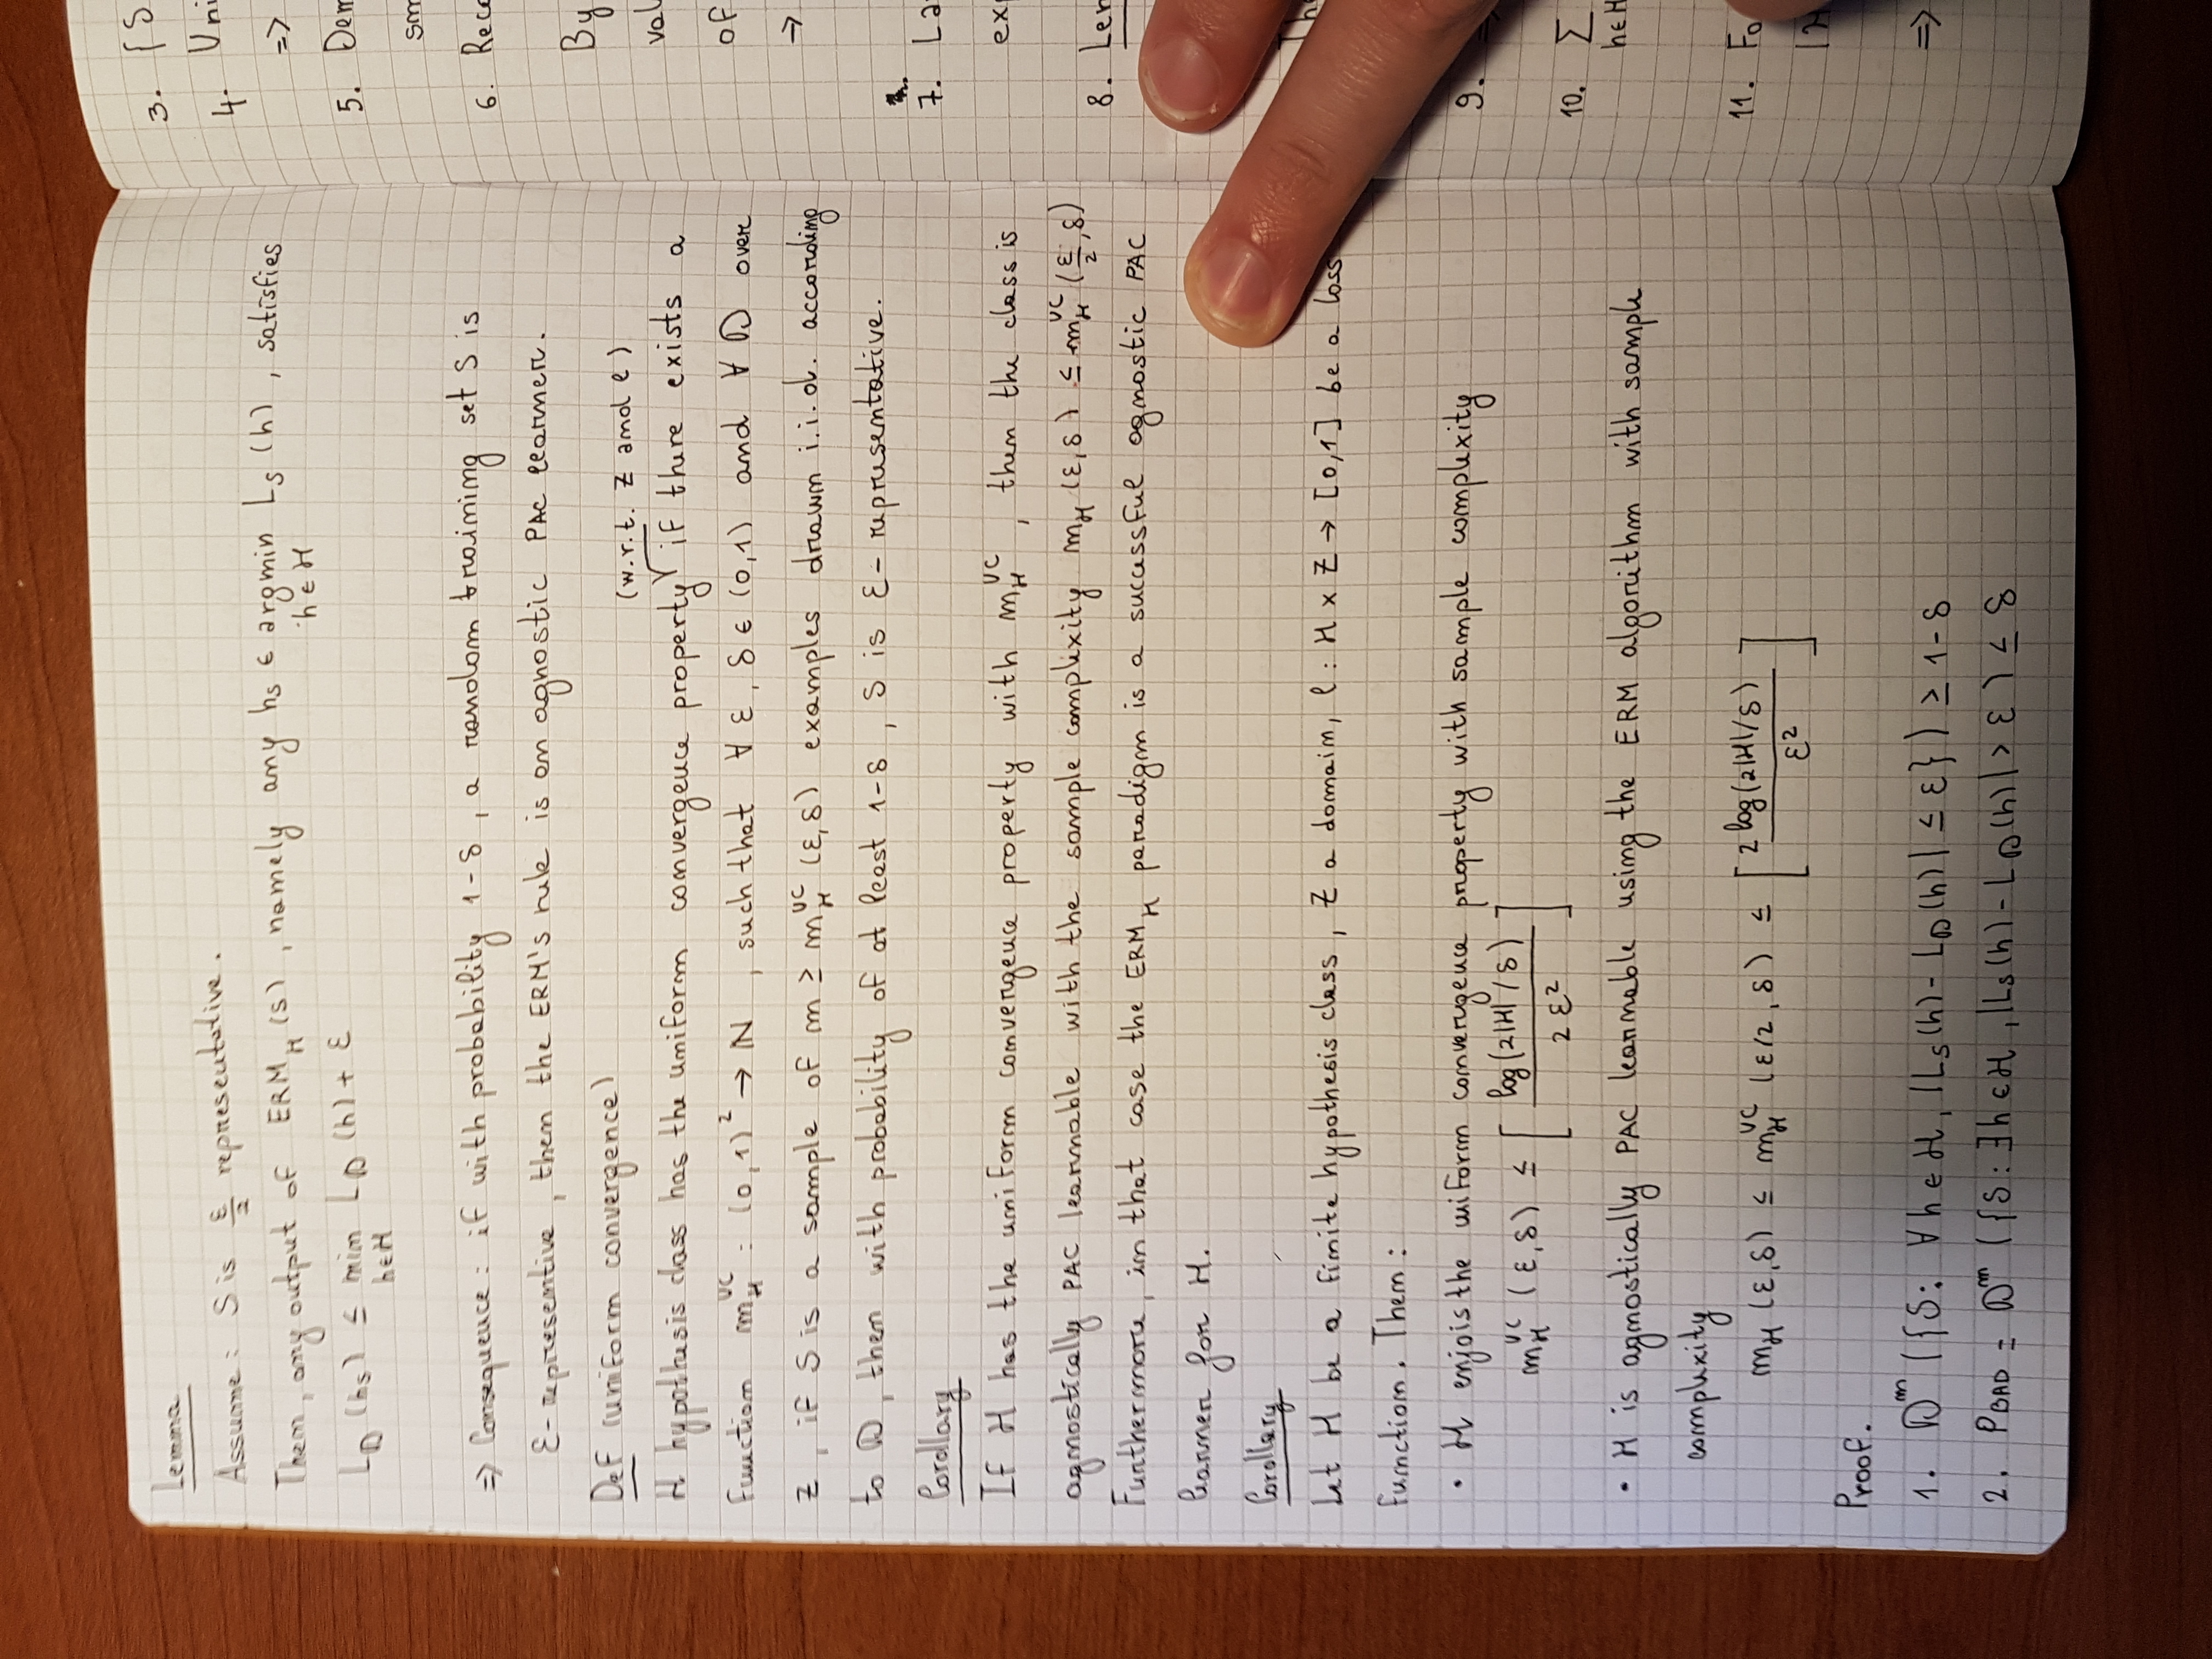 Lemma
Assume: S is ε/2 representative.
Then, any output of ERM_H (S), namely any hs ∈ argmin L_S (h), satisfies
h ∈ H
L_D (hs) ≤ min L_D (h) + ε
h∈H
=> Consequence: if with probability 1-δ, a random training set S is
ε-representive, then the ERM's rule is an agnostic PAC learner.
Def (uniform convergence)
(w.r.t. Z and ℓ)
H hypothesis class has the uniform convergence property if there exists a
function m_H^UC : (0,1)^2 → ℕ, such that ∀ ε, δ ∈ (0,1) and ∀ D over
Z, if S is a sample of m ≥ m_H^UC (ε,δ) examples drawn i.i.d. according
to D, then with probability of at least 1-δ, S is ε-representative.
Corollary
If H has the uniform convergence property with m_H^UC, then the class is
agnostically PAC learnable with the sample complexity m_H (ε,δ) ≤ m_H^UC (ε/2,δ)
Furthermore, in that case the ERM_H paradigm is a successful agnostic PAC
learner for H.
Corollary
Let H be a finite hypothesis class, Z a domain, ℓ : H x Z → [0,1] be a loss
function. Then:
• H enjois the uniform convergence property with sample complexity
m_H^UC (ε,δ) ≤ [ log(2|H|/δ) / 2ε² ]
• H is agnostically PAC learnable using the ERM algorithm with sample
complexity
m_H (ε,δ) ≤ m_H^UC (ε/2,δ) ≤ [ 2 log(2|H|/δ) / ε² ]
Proof.
1. D^m ({S: ∀h∈H, |L_S(h) - L_D(h)| ≤ ε}) ≥ 1-δ
2. P_BAD = D^m ({S: ∃h∈H, |L_S(h) - L_D(h)| > ε) ≤ δ
3. {S
4. Uni
=>
5. Dem
6.
By
of
→
7.
8.
9.
10. Σ
h∈H
11. Fo
=>